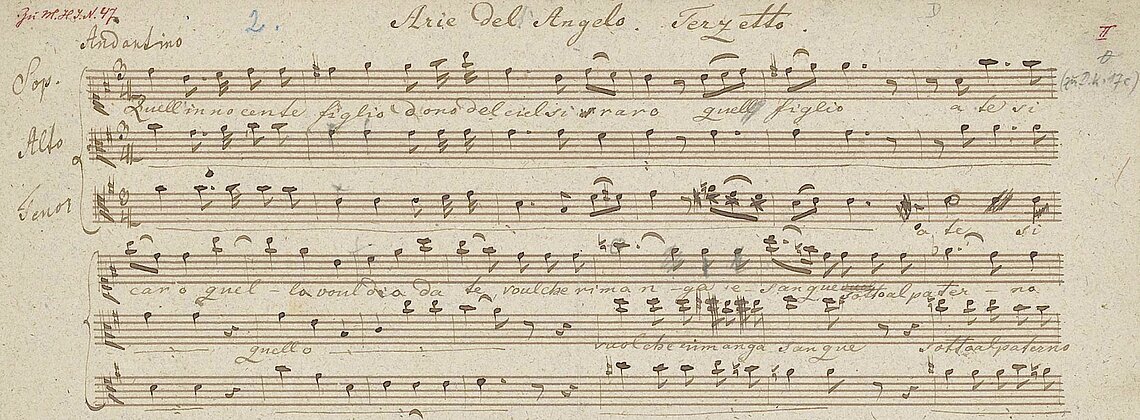 Zu M.H.I.N. 47
2. Arie del Angelo. Terzetto.
D
II
Andantino
Sop.
Quell'innocente figlio dono del ciel si raro quell figlio a te si
Alto
Tenor
a te si
caro quel-lo voul dio da te, voul che riman-ga e-sangue sotto al pater-no
quello vuol che rimanga sangue sotto al paterno